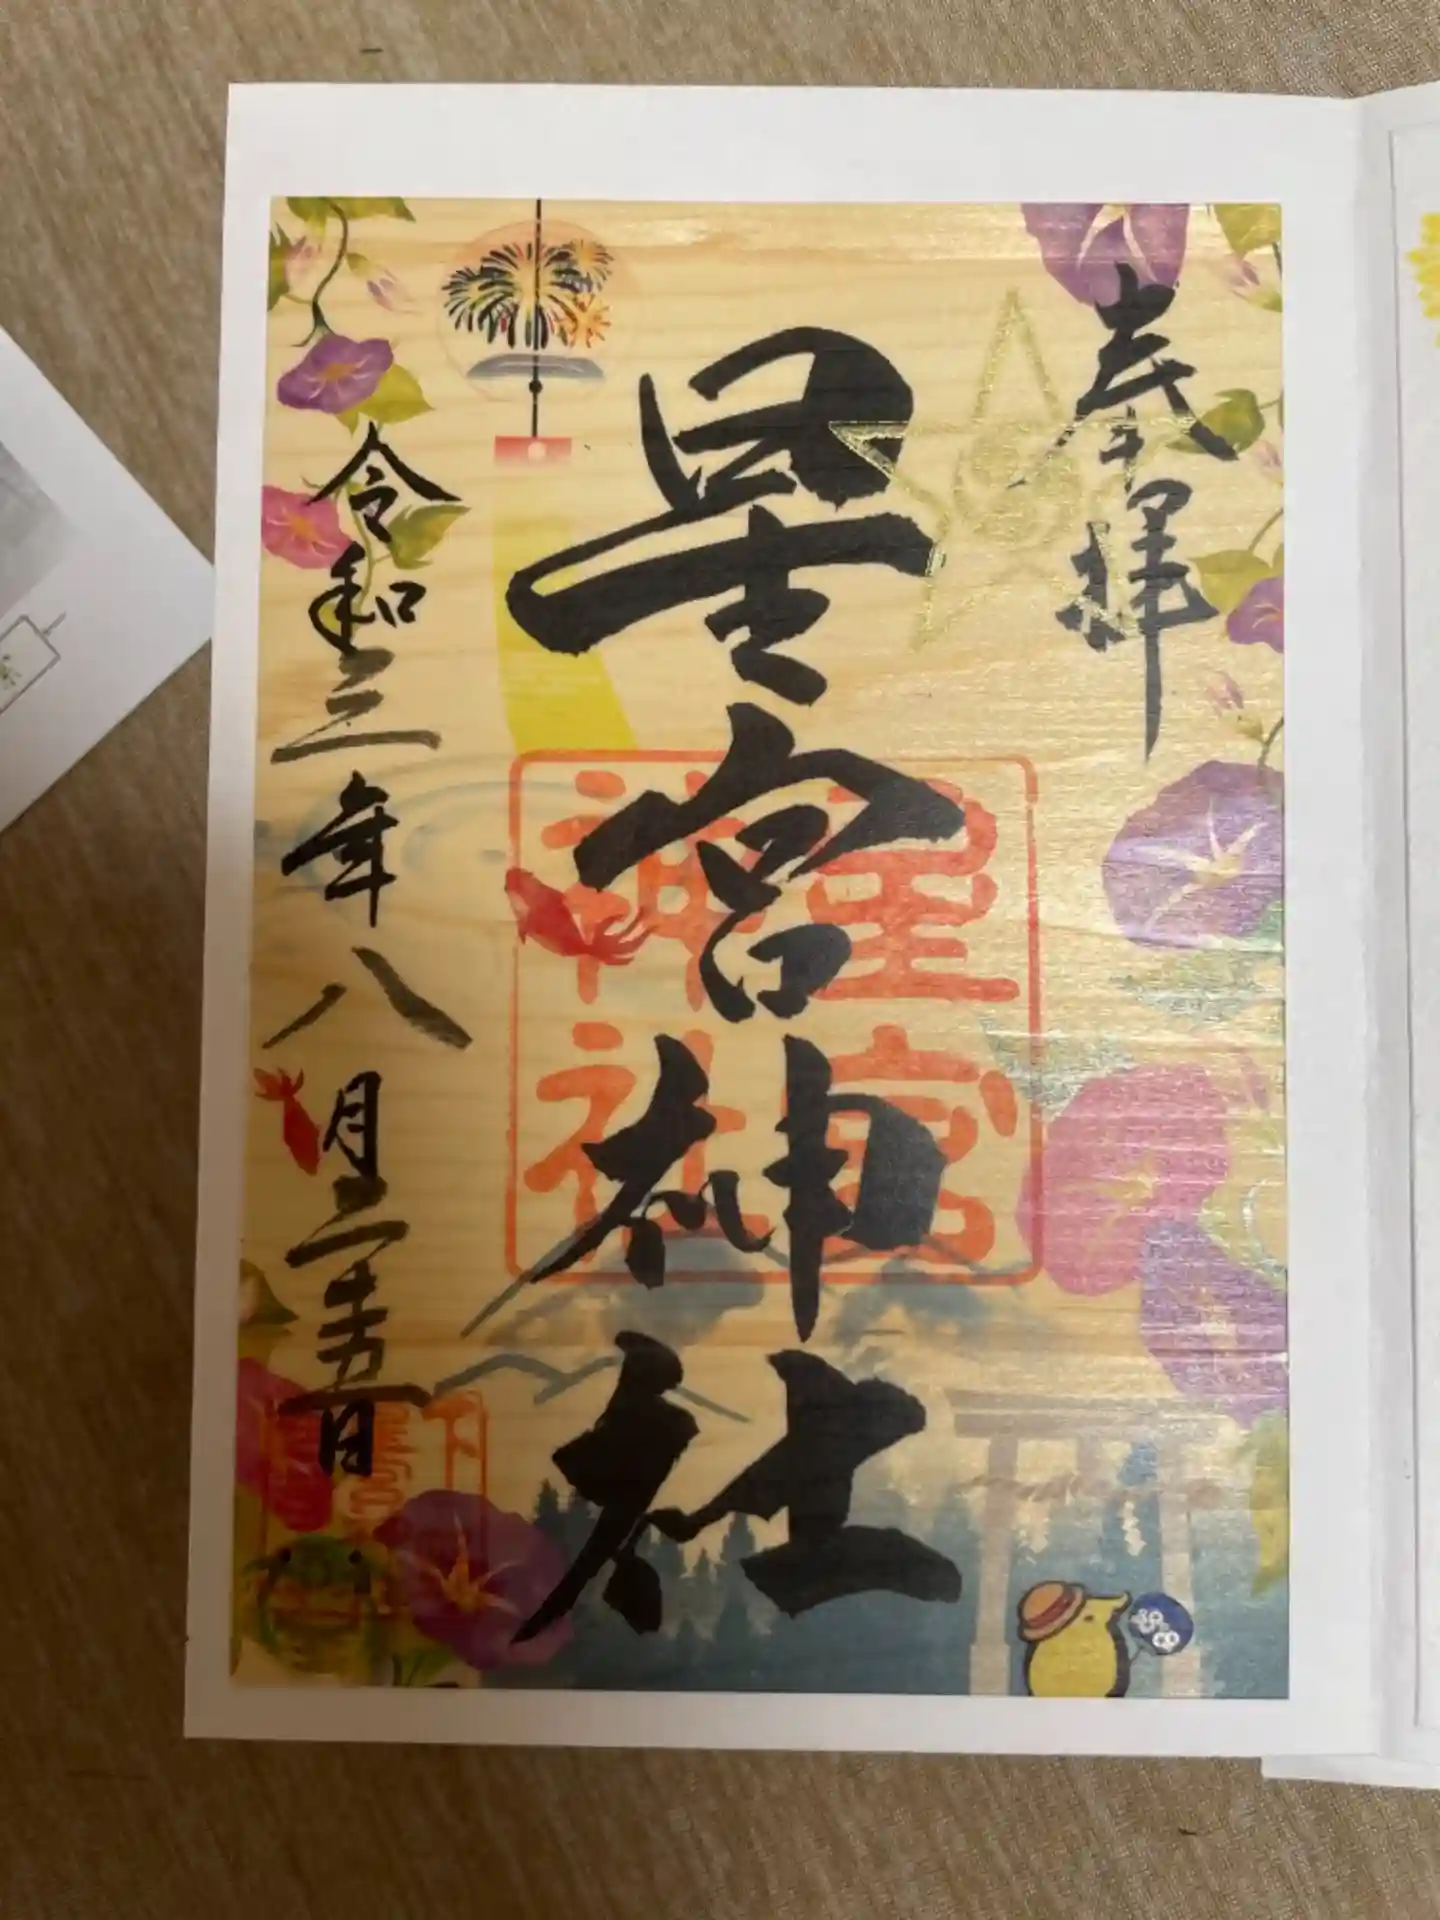 奉拝
星宮神社
星宮
神社
令和三年八月二十五日